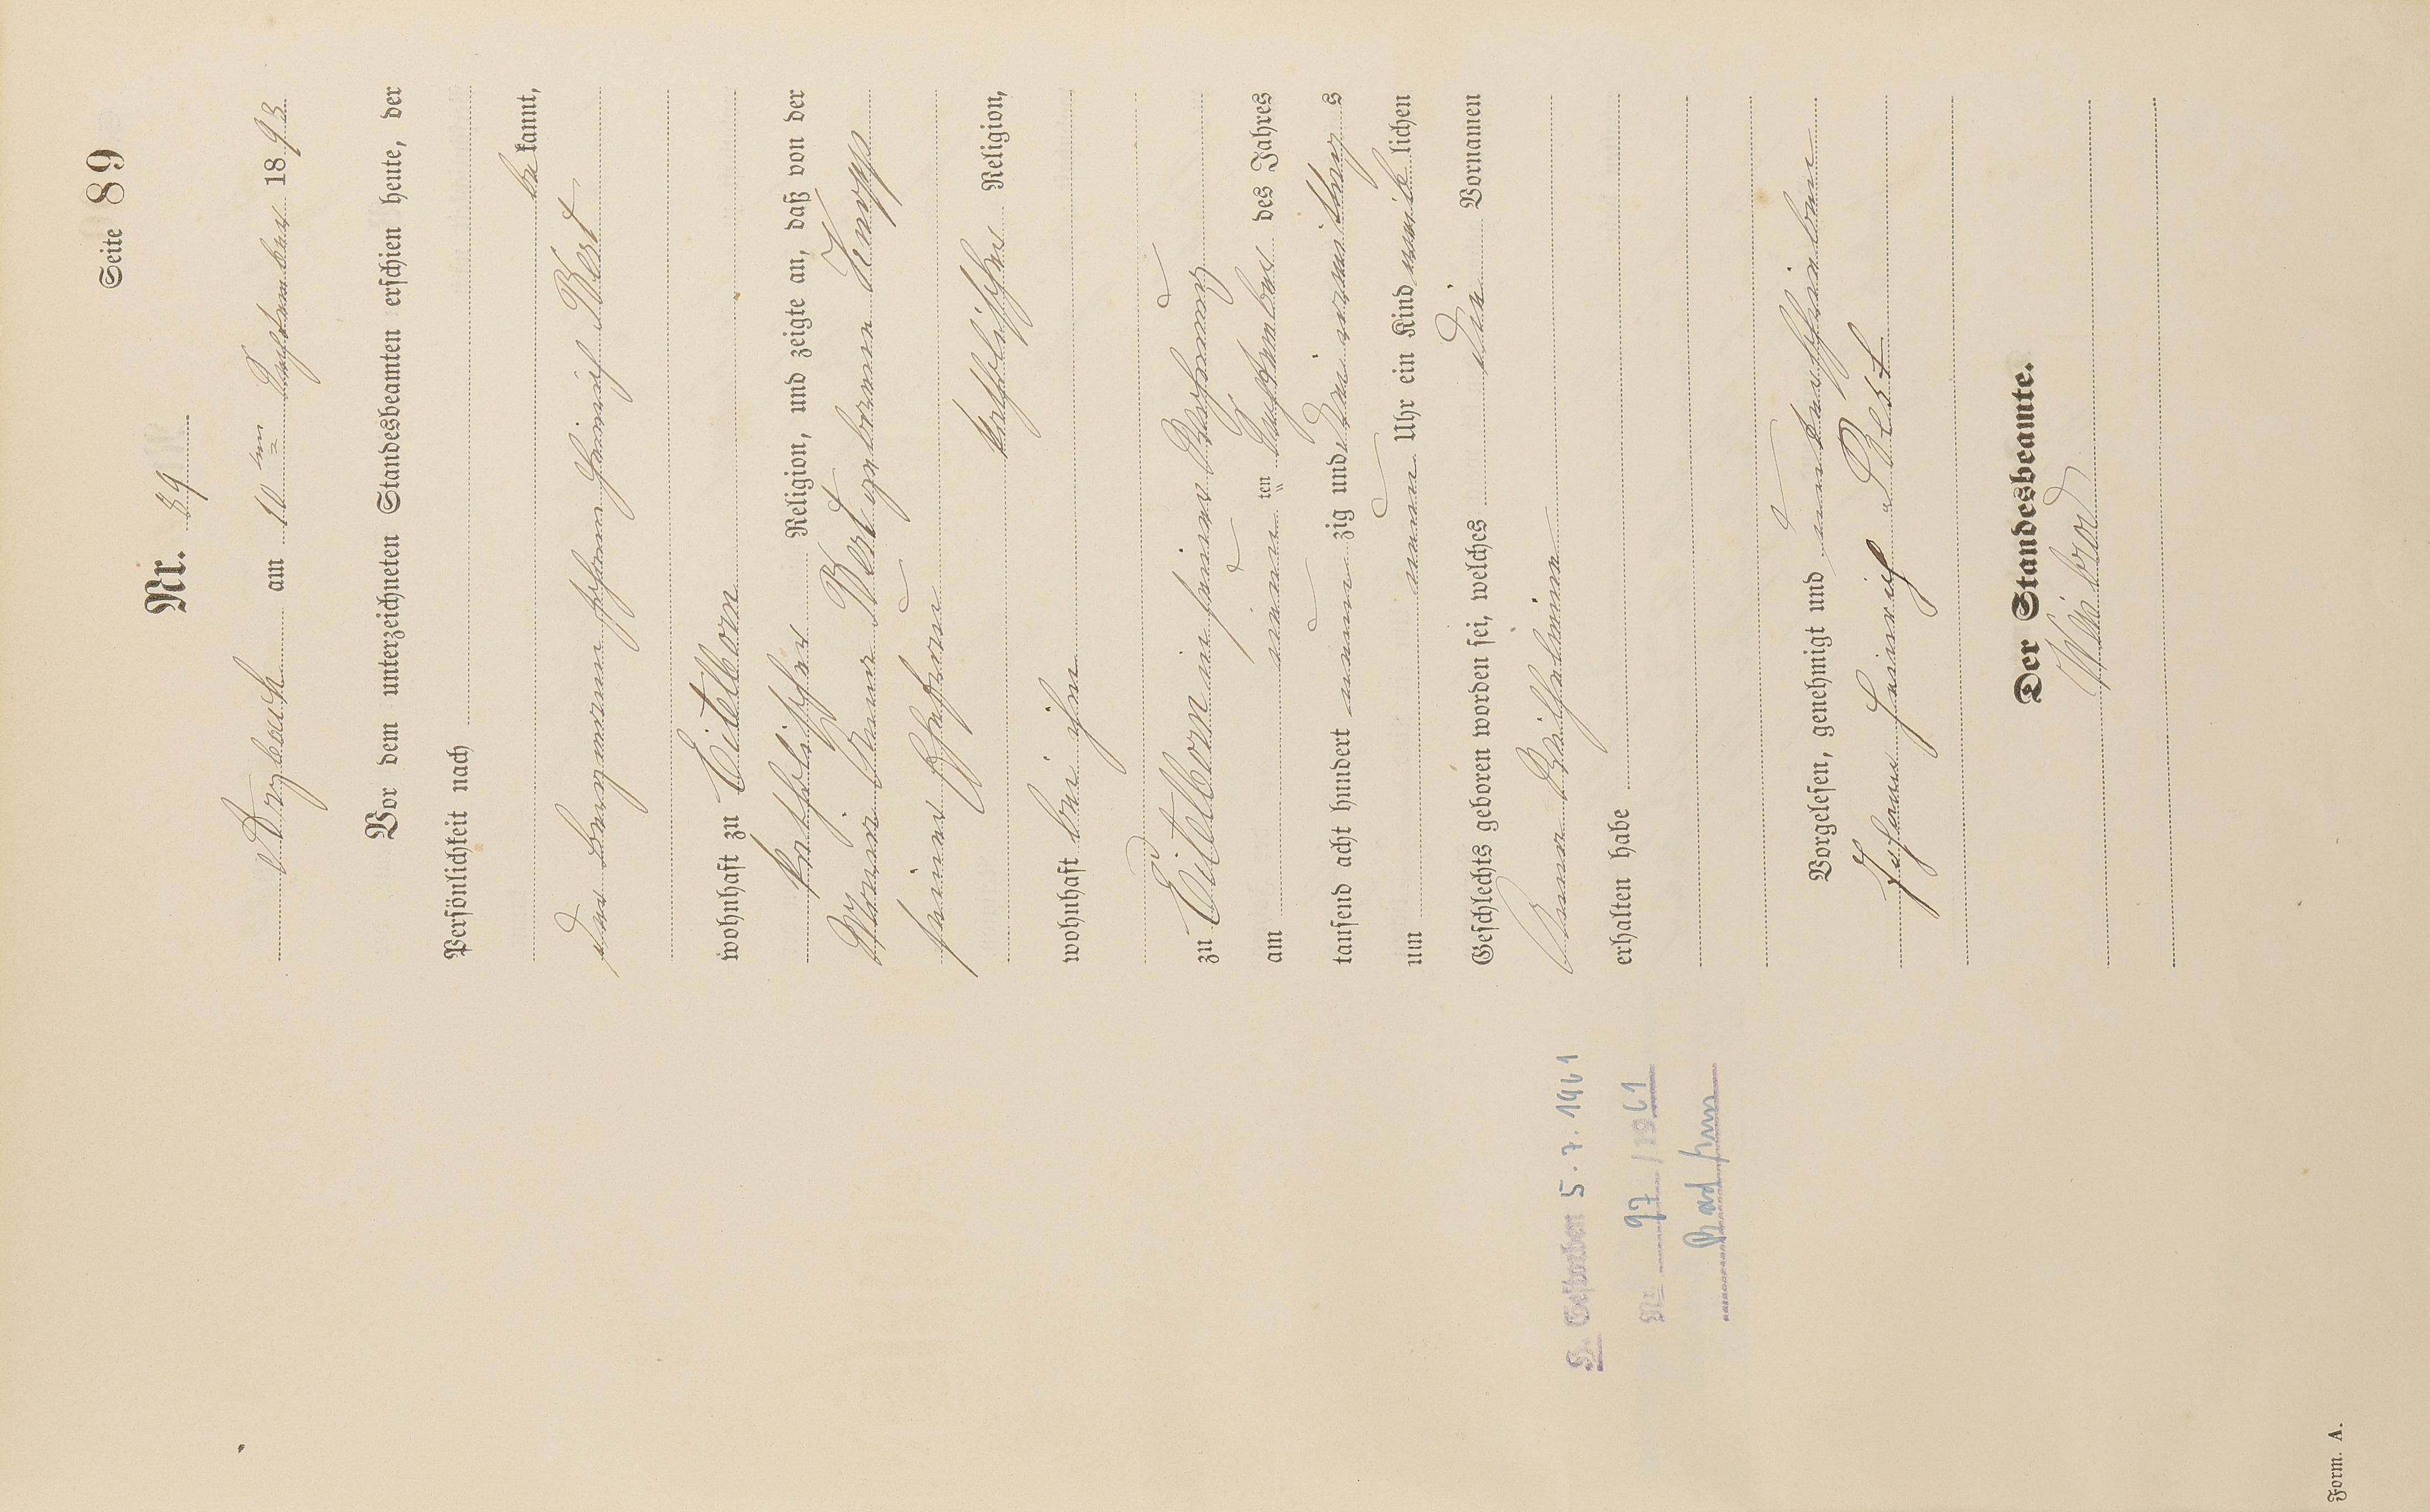 Seite 89
Nr. 89
Arzbach am 10ten September 1893
Vor dem unterzeichneten Standesbeamten erschien heute, der
Persönlichkeit nach
bekannt,
der Bergmann Johann Heinrich Best
wohnhaft zu Eitelborn
katholischer Religion, und zeigte an, daß von der
Maria Anna Best geborenen Knopp
seiner Ehefrau
katholischer Religion,
wohnhaft bei ihm
zu Eitelborn in seiner Wohnung
am neunten September des Jahres
tausend acht hundert neunzig und drei vormittags
um neun Uhr ein Kind weiblichen
Geschlechts geboren worden sei, welches die Vornamen
Anna Wilhelmina
erhalten habe
Vorgelesen, genehmigt und unterschrieben
Johann Heinrich Best
Der Standesbeamte.
H. Gestorben 5.7.1961
Nr. 97 / 1961
Form. A.